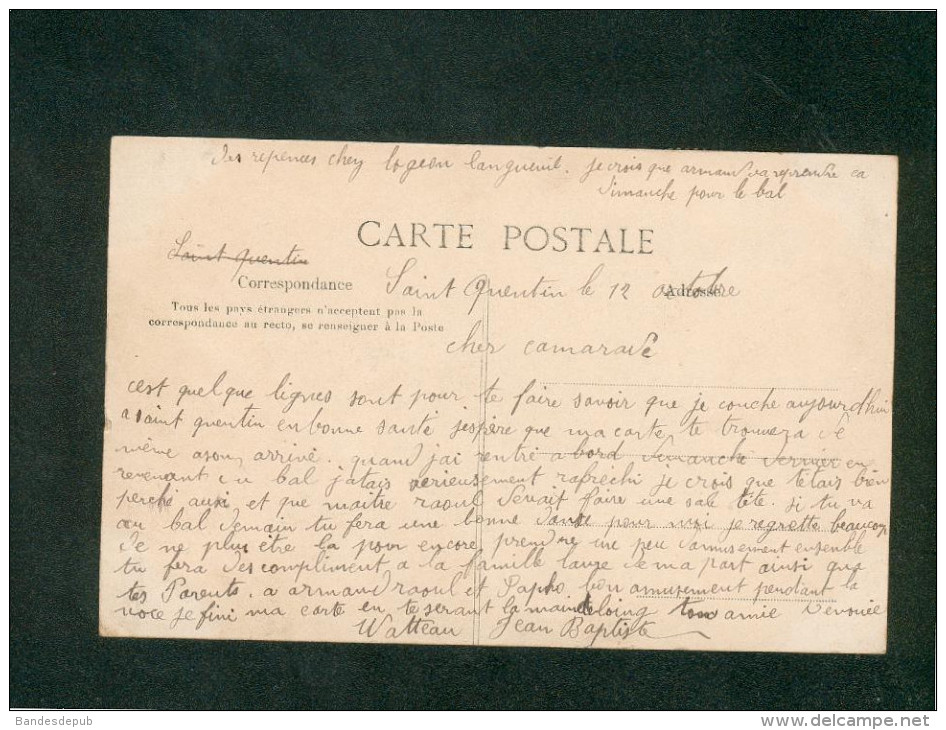 des repences chez logeon langueuil. je crois que armand va reprendre ca
dimanche pour le bal
CARTE POSTALE
Saint quentin
Correspondance
Saint Quentin le 12 octobre
Adresse
Tous les pays étrangers n'acceptent pas la
correspondance au recto, se renseigner à la Poste
cher camarade
cest quelque lignes sont pour te faire savoir que je couche aujourd'hui
a saint quentin en bonne santé jespére que ma carte te trouvera de
même a son arrivé. quand jai rentré a bord dimanche dernier en
revenant du bal jatais serieusement rafrechi je crois que tetais bien
perché aussi et que maitre raoul devait faire une sale tête. si tu va
au bal demain tu fera une bonne danse pour moi je regrette beaucoup
de ne plus être la pour encore prendre une peu damusement ensemble
tu fera des compliment a la famille de ma part ainsi que
tes Parents. a armand raoul et Papho bon amusement pendant la
noce je fini ma carte en te serant la main de loing ton amie dévouée
Watteau Jean Baptiste
Bandesdepub
www.delcampe.net